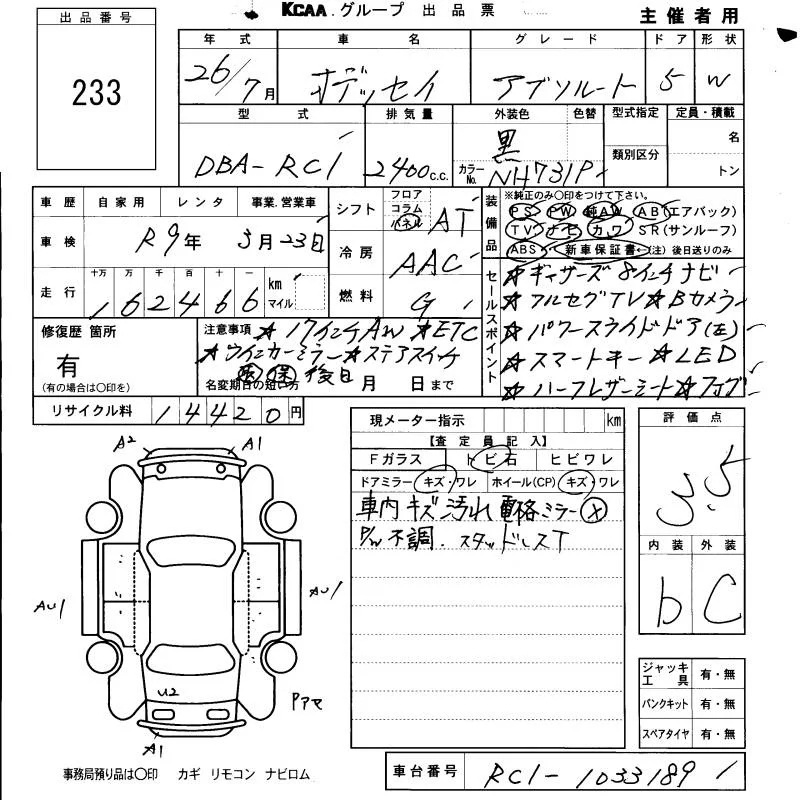 KCAA.グループ 出品票
主催者用
出品番号
233
年式 車名 グレード ドア 形状
26/7月 オデッセイ アブソルート 5 W
型式 排気量 外装色 色替 型式指定 定員・積載
DBA-RC1 2400c.c. 黒 カラーNo. NH731P 類別区分 名 トン
車歴 自家用 レンタ 事業.営業車
車検 R9年 3月23日
走行 十万 万 千 百 十 一 km マイル
162466
シフト フロア コラム パネル AT
冷房 AAC
燃料 G
装備品 ※純正のみ○印をつけて下さい。
PS PW 純AW AB(エアバック)
TV ナビ カワ SR(サンルーフ)
ABS 新車保証書←(注)後日送りのみ
セールスポイント
★ギャザーズ8インチナビ
★フルセグTV★Bカメラ
★パワースライドドア(左)
★スマートキー★LED
★ハーフレザーシート★
修復歴 箇所
有
(有の場合は○印を)
注意事項 ★17インチAW ★ETC
★ウインカーミラー★ステアスイッチ
保 後日
名変期日の短い方 月 日まで
リサイクル料 14420円
現メーター指示 km
【査定員記入】
Fガラス トビ石 ヒビワレ
ドアミラー キズ・ワレ ホイール(CP) キズ・ワレ
車内キズ汚れ 電格ミラー×
P/W不調. スタッドレスT
評価点
3.5
内装 外装
b C
ジャッキ工具 有・無
パンクキット 有・無
スペアタイヤ 有・無
A2 A1
AU1 AU1
U2
A1
Pアマ
事務局預り品は○印 カギ リモコン ナビロム
車台番号 RC1-1033189